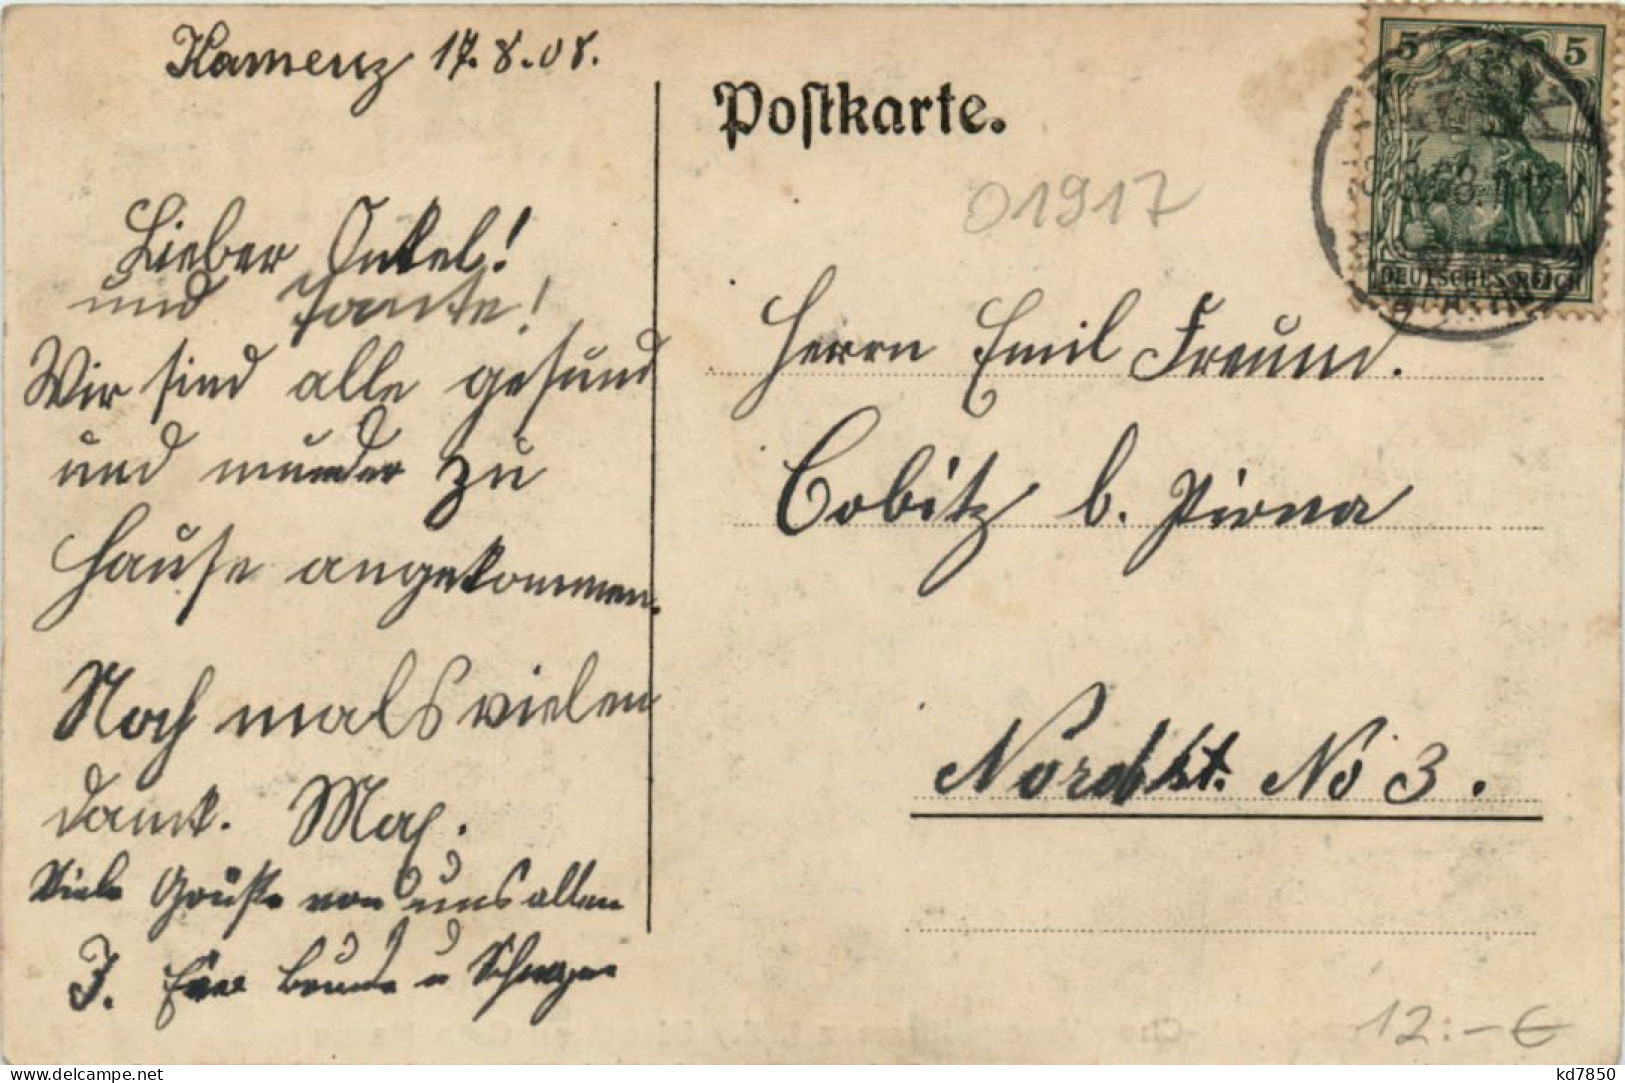 Kamenz 17.8.08.
Lieber Onkel!
und Tante!
Wir sind alle gesund
und munder zu
Hause angekommen.
Noch mals vielen
Dank. Max.
Viele Grüße von uns allen
Postkarte.
01917
5 5
DEUTSCHES REICH
Herrn Emil Freund.
Cobitz b. Pirna
Nordst. No 3.
12.-€
kd7850